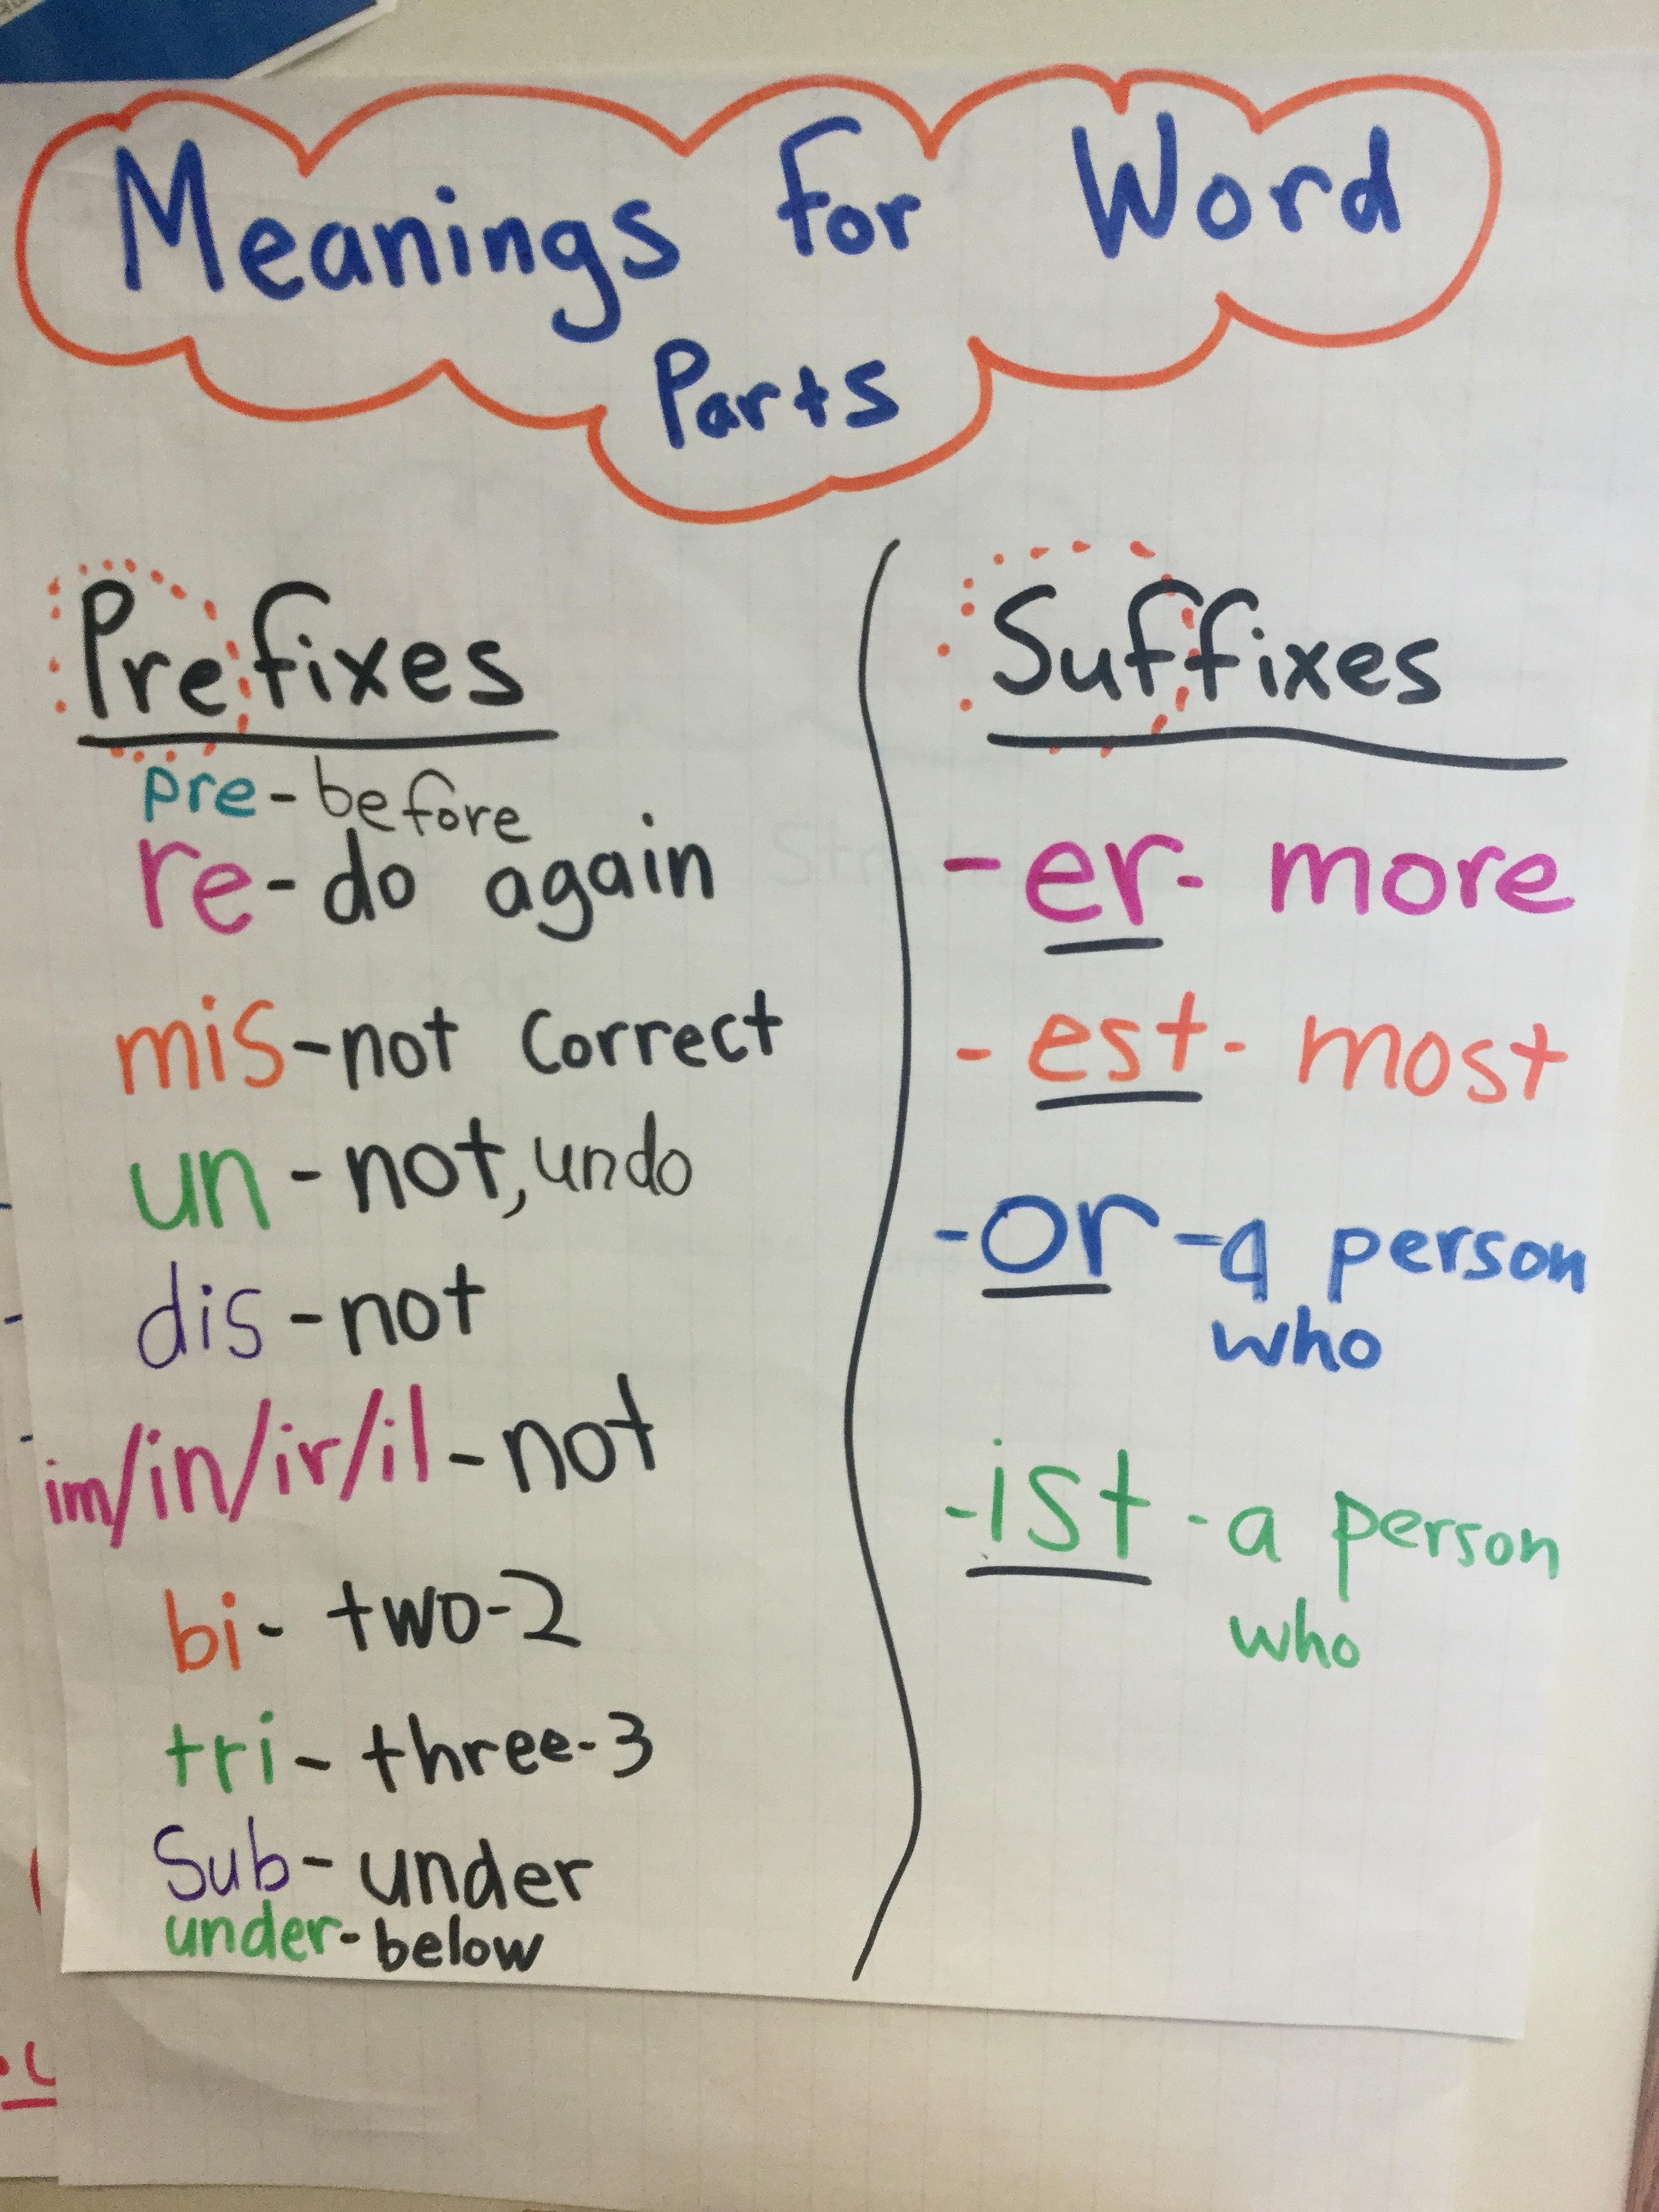 Meanings for Word
Parts
Prefixes
pre - before
re - do again
mis - not correct
un - not, undo
dis - not
im/in/ir/il - not
bi - two - 2
tri - three - 3
Sub - under
under - below
Suffixes
- er - more
- est - most
- or - a person
who
- ist - a person
who